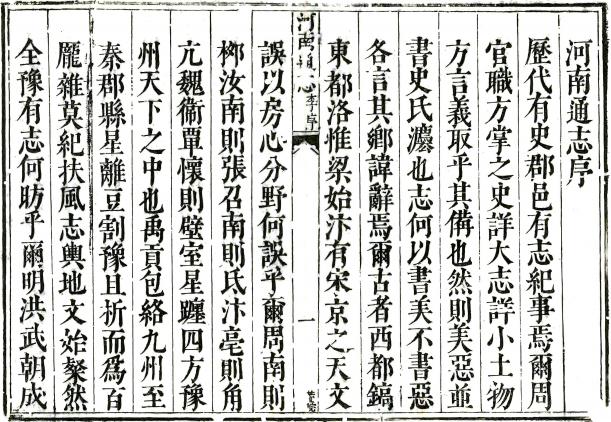 河南通志序
歷代有史郡邑有志紀事焉爾周
官職方掌之史詳大志詳小土物
方言義取乎其備也然則美惡並
書史氏灋也志何以書美不書惡
各言其鄉諱辭焉爾古者西都鎬
東都洛惟梁始汴有宋京之天文
河南通志
李序
一
誤以房心分野何誤乎爾周南則
柳汝南則張召南則氐汴亳則角
亢魏衞覃懷則壁室星躔四方豫
州天下之中也禹貢包絡九州至
秦郡縣星離豆割豫且折而爲百
龎雜莫紀扶風志輿地文始粲然
全豫有志何昉乎爾明洪武朝成